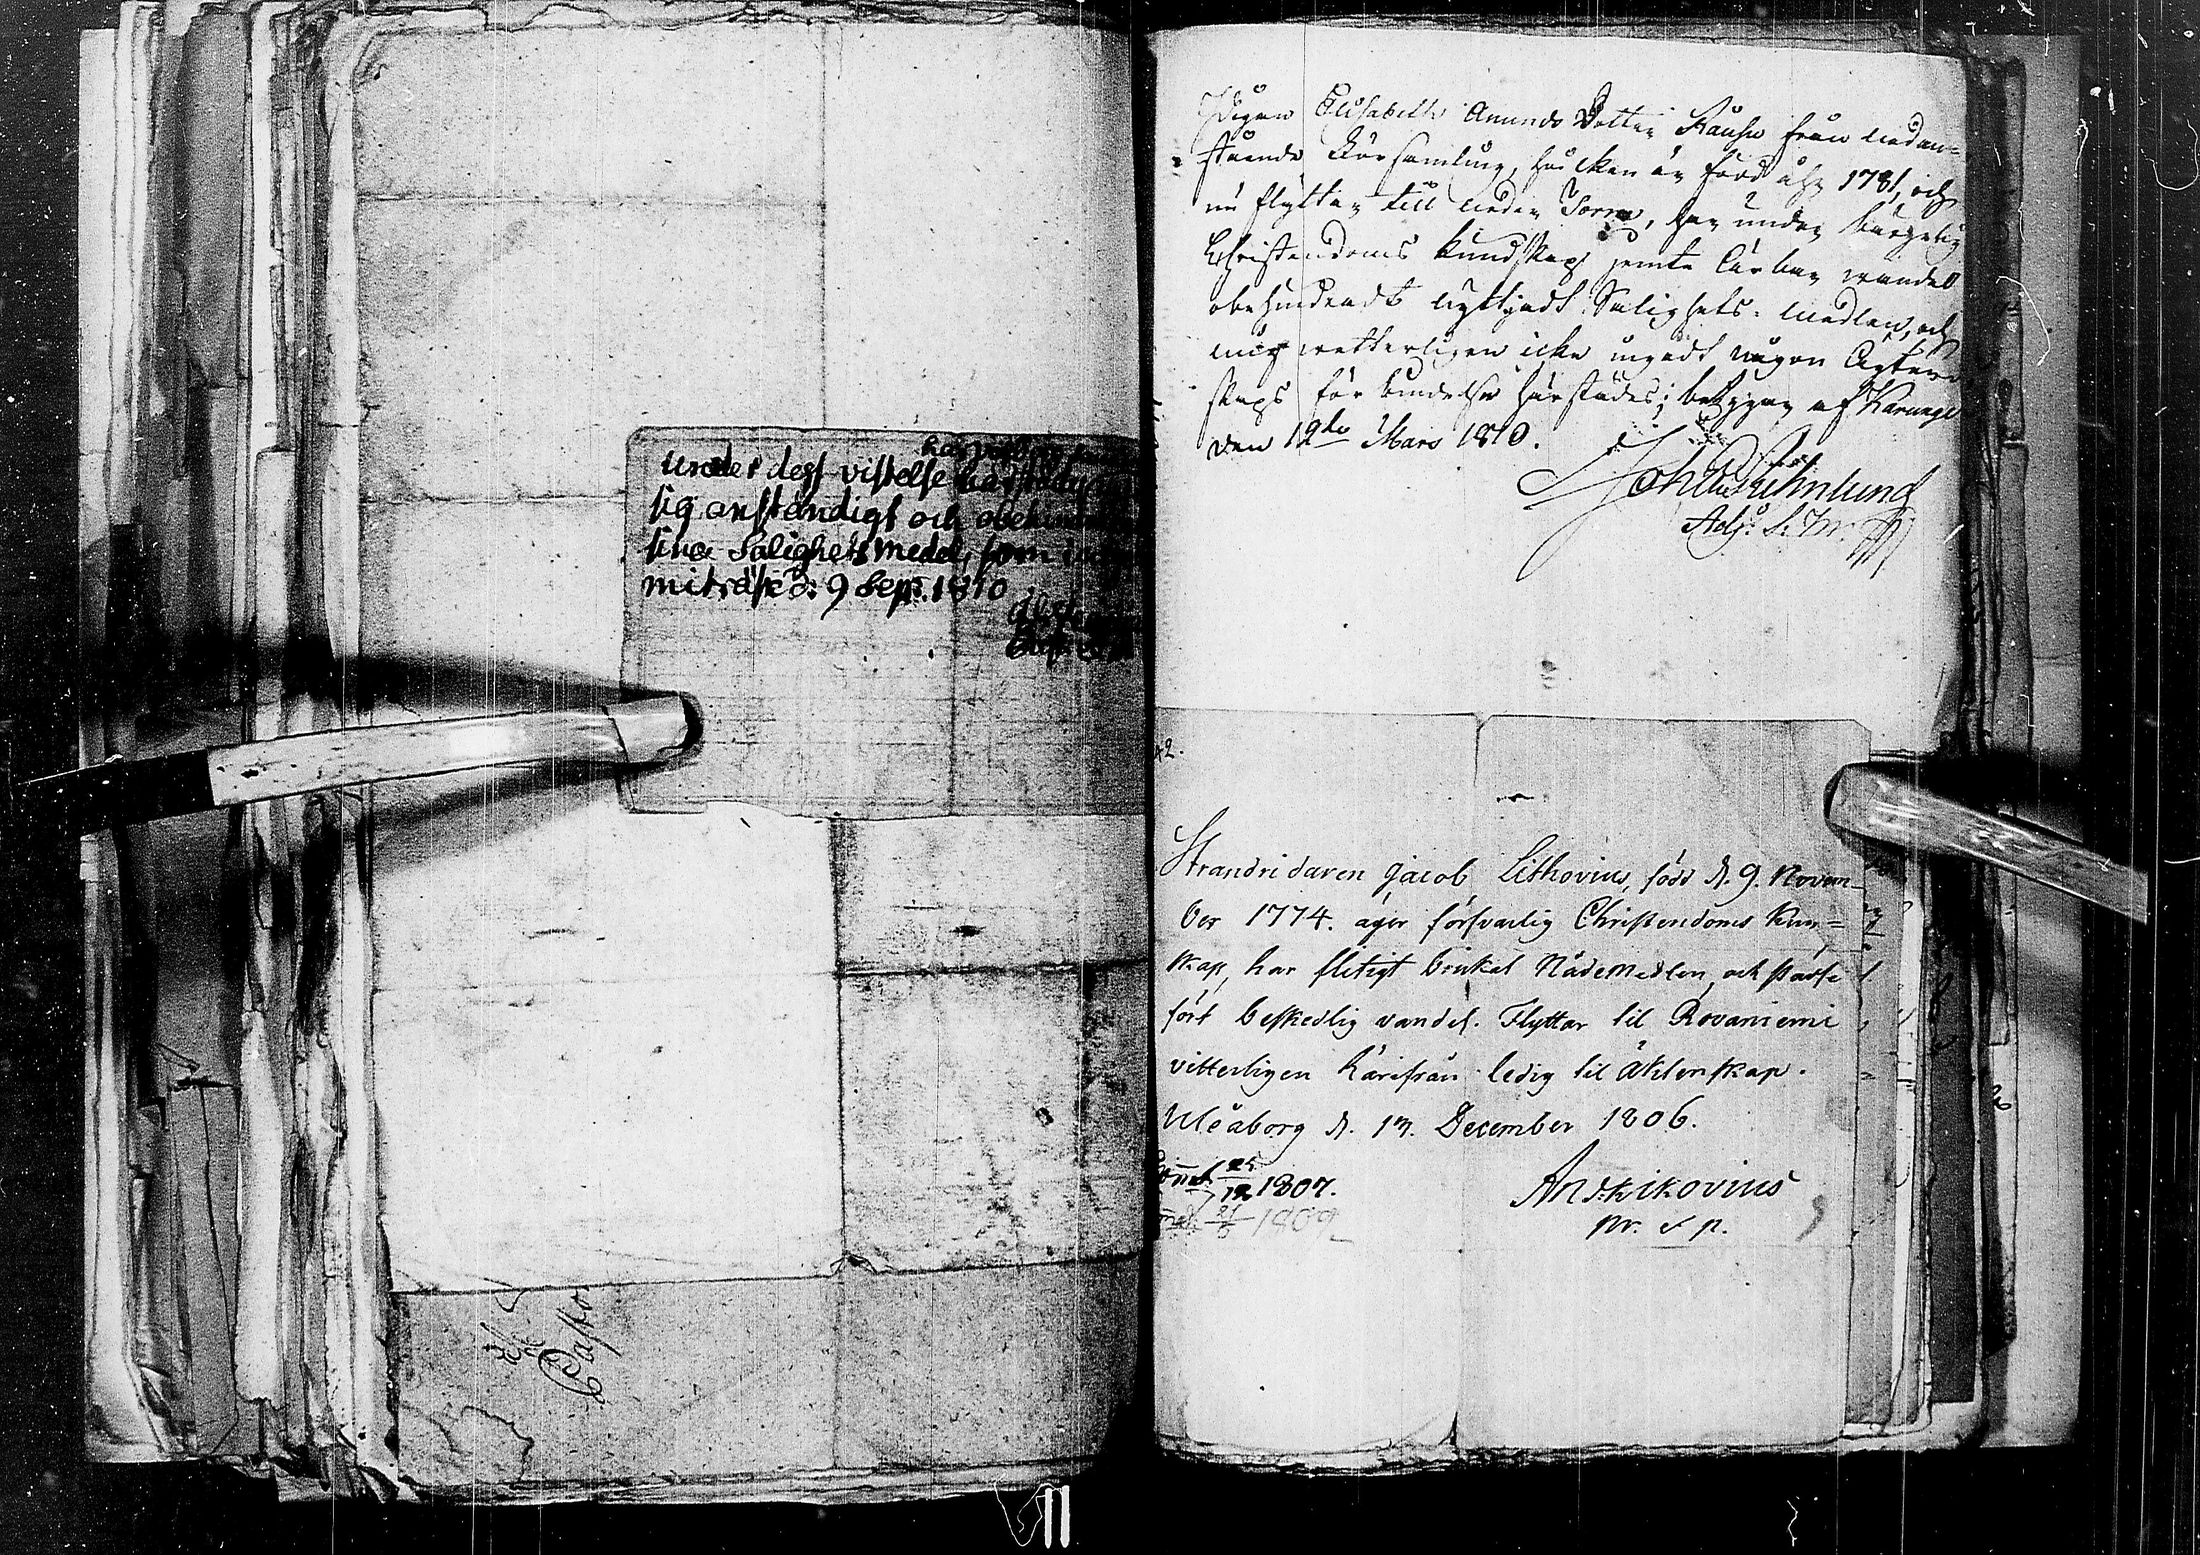 under dess vistelse härstädes
sig anständigt och obehind
sina Salighets medel, som in
miträsk d: 9 Sept. 1810
Pasto
Pigan Elisabeth Amunds Dotter Kauhu från nedan=
stående Församling, hvilken är född åhr 1781, och
nu flyttar till neder Torne, har under
Christendoms kundskap jemte ärbar vandel
obehindradt nyttjadt Salighets-medlen, och
mig vetterligen icke ingådt någon Ägten-
skaps förbindelse härstädes; betygar af Karungi
den 12te Mars 1810.
Joh
Adj. S. M.
42.
Strandridaren Jacob Lithovius, född d. 9. Novem-
ber 1774. äger försvarlig Christendoms kun=
skap, har flitigt brukat Nådemedlen, och städse
fört beskedlig vandel. Flyttar til Rovaniemi
vitterligen härifrån ledig til Äktenskap.
Uleåborg d. 13. December 1806.
25/12 1807.
21/6 1809
And. Kikovius